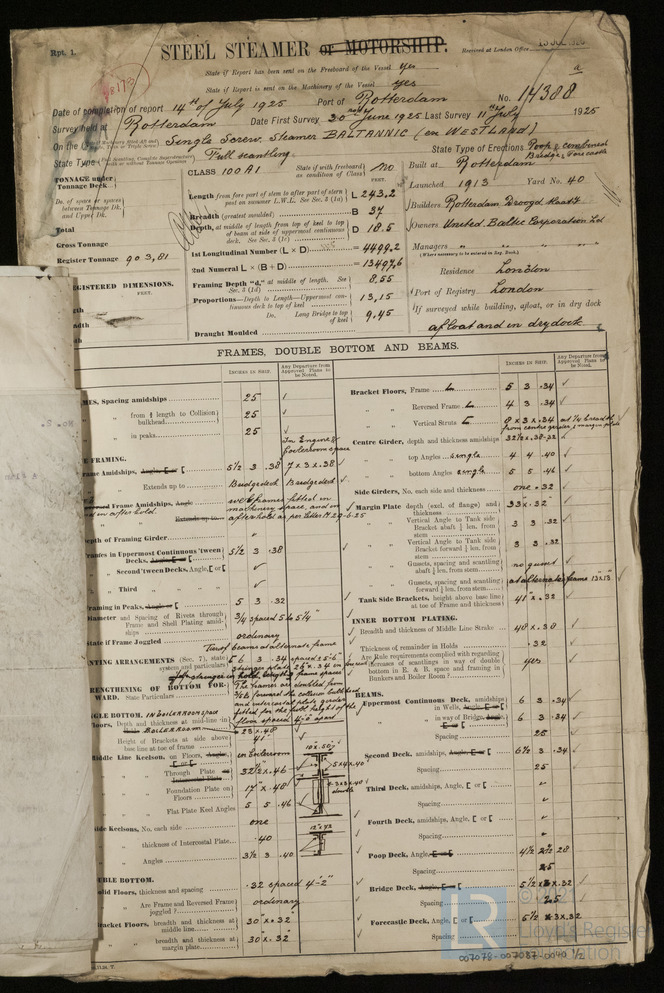 Rpt. 1.
STEEL STEAMER or MOTORSHIP.
Received at London Office
State if Report has been sent on the Freeboard of the Vessel yes
State if Report is sent on the Machinery of the Vessel yes
Date of completion of report 14th of July 1925 Port of Rotterdam No. 14388 a
Survey held at Rotterdam Date First Survey 30 June 1925 Last Survey 11th July 1925
On the Single Screw Steamer BALTANNIC (ex WESTLAND)
State Type Full scantling
State Type of Erections Poop & combined Bridge & Forecastle
TONNAGE under Tonnage Deck
Do. of space or spaces between Tonnage Dk. and Upper Dk.
Total
Gross Tonnage
Register Tonnage 903,81
REGISTERED DIMENSIONS.
FEET.
CLASS 100A1 State if with freeboard as condition of Class No
FEET.
Length from fore part of stem to after part of stern post on summer L.W.L. See Sec. 3 (1a) L 243.2
Breadth (greatest moulded) B 37
Depth, at middle of length from top of keel to top of beam at side of uppermost continuous deck. See Sec. 3 (1c) D 18.5
1st Longitudinal Number (L × D) = 4499.2
2nd Numeral L × (B + D) = 13497,6
Framing Depth "d," at middle of length. See Sec. 3 (1d) 8.55
Proportions—Depth to Length—Uppermost continuous deck to top of keel 13,15
Do. Long Bridge to top of keel 9,45
Draught Moulded
Built at Rotterdam
Launched 1913 Yard No. 40
Builders Rotterdam Droogd Maatij
Owners United Baltic Corporation Ld
Managers " " "
(Where necessary to be entered in Reg. Book.)
Residence London
Port of Registry London
If surveyed while building, afloat, or in dry dock
afloat and in drydock
FRAMES, DOUBLE BOTTOM AND BEAMS.
INCHES IN SHIP.
Any Departure from Approved Plans to be Noted.
MES, Spacing amidships 25
" " from ⅕ length to Collision bulkhead 25
" " in peaks 25
In Engine & Boilerroom space
E-FRAMING.
rame Amidships, Angle, E or [ 5½ 3 .38 7 × 3 × .38
Extends up to Bridgedeck Bridgedeck
Frame Amidships, Angle
in afterhold
Extends up to
web frames fitted in machinery space, and in afterhold as per letter M 29-6-25
epth of Framing Girder
rames in Uppermost Continuous 'tween Decks, Angle, E or [ 5½ 3 .38
" Second 'tween Decks, Angle, [ or [
" Third " "
raming in Peaks, Angle or [ 5 3 .32
iameter and Spacing of Rivets through Frame and Shell Plating amidships ¾ spaced 5 to 5¼"
tate if Frame Joggled ordinary
NTING ARRANGEMENTS (Sec. 7), state system and particulars
Tier of beams at alternate frame
5 6 3 .34 spaced 25-6"
RENGTHENING OF BOTTOM FORWARD. State Particulars
The frames are doubled from
forward the collision bulkhead
and intercostal plate girders
fitted for the full height of the
floor spaced 4'-2" apart
GLE BOTTOM, IN Boilerroom space
loors, Depth and thickness at mid-line in Boilerroom 23 × .48
Height of Brackets at side above base line at toe of frame 41"
iddle Line Keelson, on Floors, Angle, E or [ in Boilerroom
" " Through Plate or Intercostal Plate 32½ × .46
" " Foundation Plate on Floors 17 × .48
" " Flat Plate Keel Angles 5 5 .46
10 × .50
5 × 4 × .40
ide Keelsons, No. each side one
" " thickness of Intercostal Plate .40
" " Angles 3½ 3 .40
UBLE BOTTOM.
olid Floors, thickness and spacing .32 spaced 4'-2"
" " Are Frame and Reversed Frame joggled? ordinary
racket Floors, breadth and thickness at middle line 30 × .32
" " breadth and thickness at margin plate 30 × .32
INCHES IN SHIP.
Any Departure from Approved Plans to be Noted.
Bracket Floors, Frame L 5 3 .34
" " Reversed Frame L 4 3 .34
" " Vertical Struts 8 × 3 × .34 at ¼ breadth from centre girder & margin plate
Centre Girder, depth and thickness amidships 32½ × .38-.32
" " top Angles single 4 4 .40
" " bottom Angles single 5 5 .46
Side Girders, No. each side and thickness one .32
Margin Plate depth (excl. of flange) and thickness 33 × .32
" " Vertical Angle to Tank side Bracket abaft ¼ len. from stem 3 3 .32
" " Vertical Angle to Tank side Bracket forward ¼ len. from stem 3 3 .32
" " Gussets, spacing and scantling abaft ¼ len. from stem no gusset
" " Gussets, spacing and scantling forward ¼ len. from stem at alternate frame 13×13
Tank Side Brackets, height above base line at toe of Frame and thickness 41 × .32
INNER BOTTOM PLATING.
Breadth and thickness of Middle Line Strake 48 × .38
Thickness of remainder in Holds .32
Are Rule requirements complied with regarding increases of scantlings in way of double bottom in E. & B. space and framing in Bunkers and Boiler Room? yes
BEAMS.
Uppermost Continuous Deck, amidships in Wells, Angle, E or [ 6 3 .34
" " in way of Bridge, Angle, E or [ 6 3 .34
Spacing 25
Second Deck, amidships, Angle, E or [ 6½ 3 .34
Spacing 25
Third Deck, amidships, Angle, [ or [
Spacing
Fourth Deck, amidships, Angle, [ or [
Spacing
Poop Deck, Angle, E or [ 4½ 2½ 28
Spacing 25
Bridge Deck, Angle, E or [ 5½ × 3 × .32
Spacing 25
Forecastle Deck, Angle, [ or [ 5½ × 3 × .32
Spacing
© 2021
LR
Lloyd's Register
Foundation
007078-007087-0040 1/2